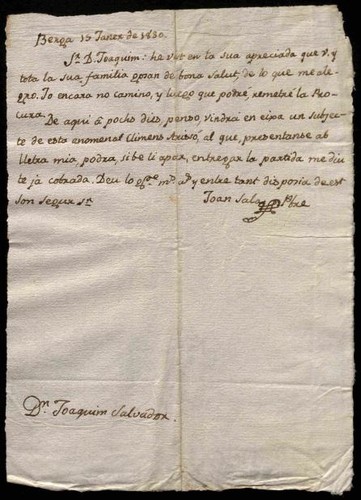 Berga 15 Janer de 1830.
Sr. D. Joaquim: he vist en la sua apreciada que V. y
tota la sua familia gosan de bona salut, de lo que me ale-
gro. Jo encara no camino, y luego que podré, remetré la Pro-
cura. De aqui á pochs dias penso vindrá en eixa un subjec-
te de esta enomenat Climens, al que, presentanse ab
lletra mia, podrá, si be li apar, entregar la partida me diu
te ja cobrada. Deu lo gde. ms. as. y entre tant disposia de est
son segur st.
Joan Pbre
Dn. Joaquim Salvador.